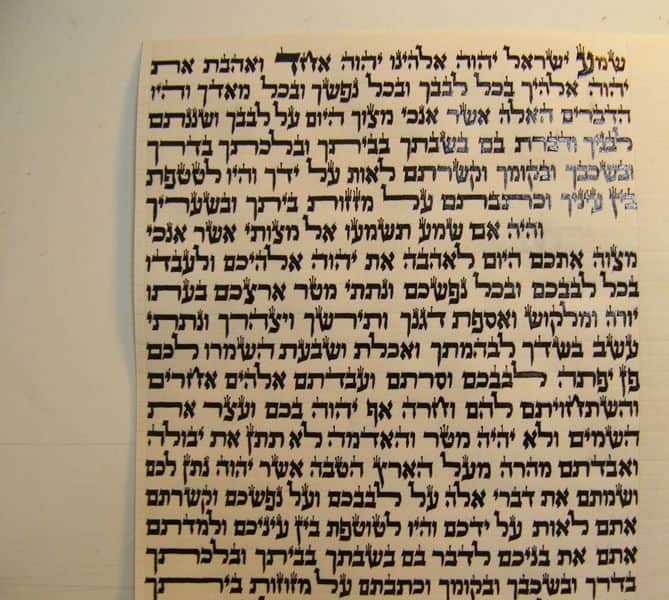 שמע ישראל יהוה אלהינו יהוה אחד ואהבת את
יהוה אלהיך בכל לבבך ובכל נפשך ובכל מאדך והיו
הדברים האלה אשר אנכי מצוך היום על לבבך ושננתם
לבניך ודברת בם בשבתך בביתך ובלכתך בדרך
ובשכבך ובקומך וקשרתם לאות על ידך והיו לטטפת
בין עיניך וכתבתם על מזזות ביתך ובשעריך
והיה אם שמע תשמעו אל מצותי אשר אנכי
מצוה אתכם היום לאהבה את יהוה אלהיכם ולעבדו
בכל לבבכם ובכל נפשכם ונתתי מטר ארצכם בעתו
יורה ומלקוש ואספת דגנך ותירשך ויצהרך ונתתי
עשב בשדך לבהמתך ואכלת ושבעת השמרו לכם
פן יפתה לבבכם וסרתם ועבדתם אלהים אחרים
והשתחויתם להם וחרה אף יהוה בכם ועצר את
השמים ולא יהיה מטר והאדמה לא תתן את יבולה
ואבדתם מהרה מעל הארץ הטבה אשר יהוה נתן לכם
ושמתם את דברי אלה על לבבכם ועל נפשכם וקשרתם
אתם לאות על ידכם והיו לטוטפת בין עיניכם ולמדתם
אתם את בניכם לדבר בם בשבתך בביתך ובלכתך
בדרך ובשכבך ובקומך וכתבתם על מזוזות ביתך